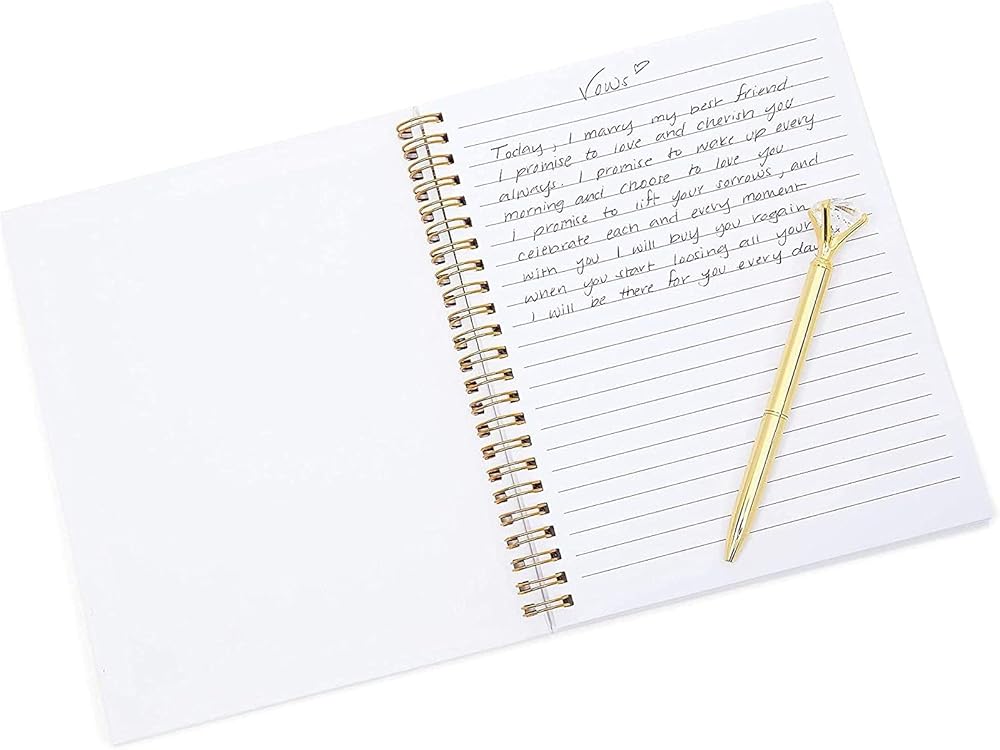 Vows ♡
Today, I marry my best friend
I promise to love and cherish you
always. I promise to wake up every
morning and choose to love you
I promise to lift your sorrows, and
celebrate each and every moment
with you I will buy you rogain
when you start loosing all your
I will be there for you every day